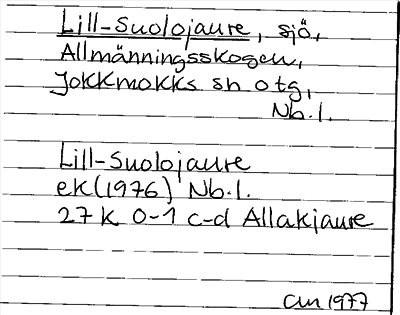 Lill-Suolojaure, sjö,
Allmänningsskogen,
Jokkmokks sn o tg,
Nb.l.
Lill-Suolojaure
ek (1976) Nb.l.
27 K 0-1 c-d Allakjaure
1977